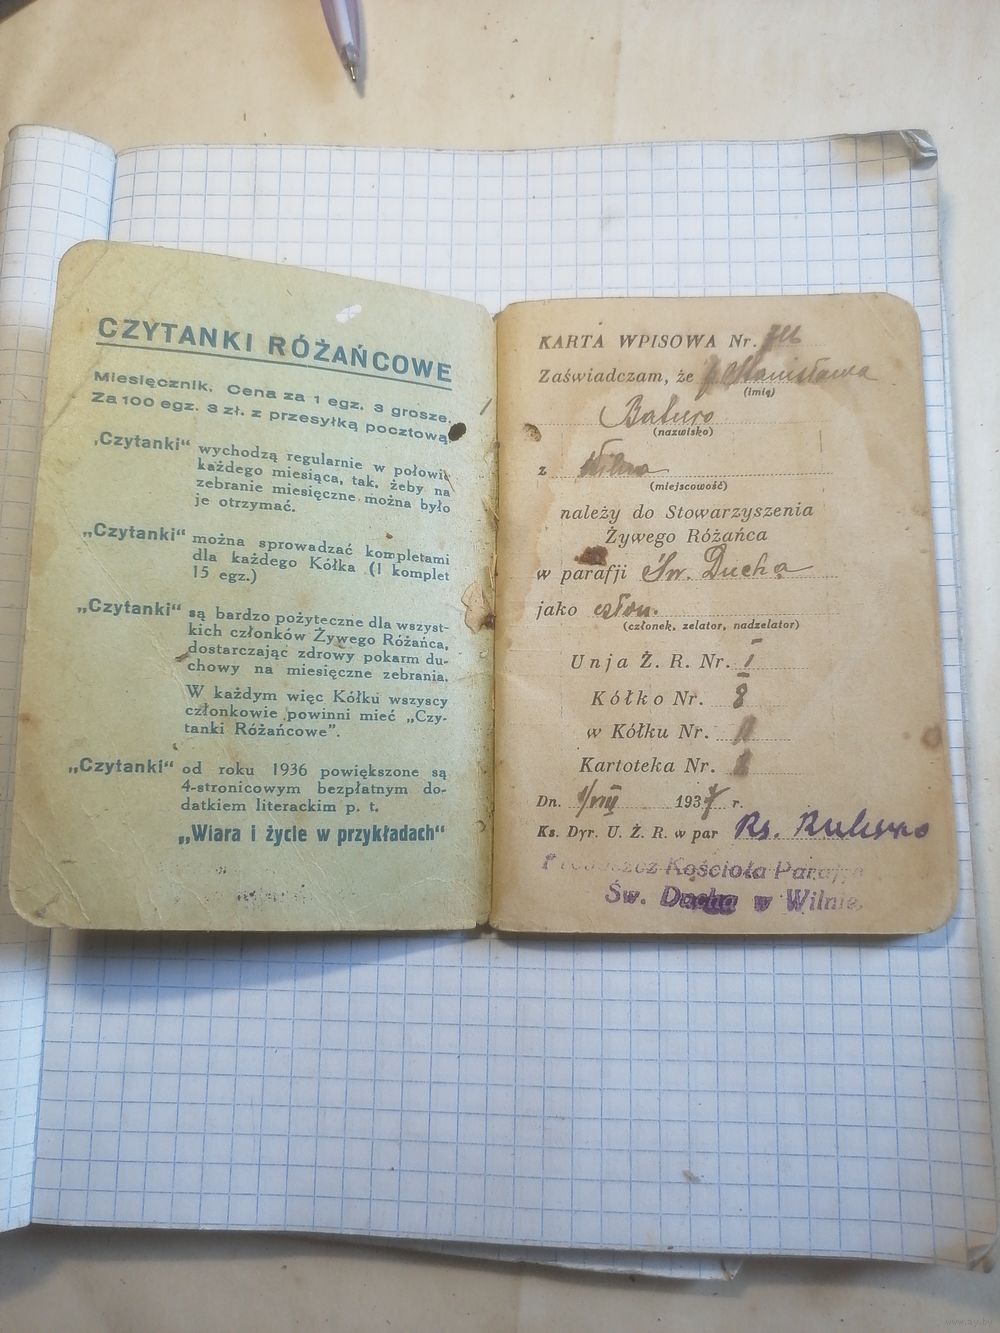 CZYTANKI RÓŻAŃCOWE
Miesięcznik. Cena za 1 egz. 3 grosze.
Za 100 egz. 3 zł. z przesyłką pocztową
„Czytanki“ wychodzą regularnie w połowie
każdego miesiąca, tak. żeby na
zebranie miesięczne można było
je otrzymać.
„Czytanki“ można sprowadzać kompletami
dla każdego Kółka (1 komplet
15 egz.)
„Czytanki“ są bardzo pożyteczne dla wszyst-
kich członków Żywego Różańca,
dostarczając zdrowy pokarm du-
chowy na miesięczne zebrania.
W każdym więc Kółku wszyscy
członkowie powinni mieć „Czy-
tanki Różańcowe”.
„Czytanki“ od roku 1936 powiększone są
4-stronicowym bezpłatnym do-
datkiem literackim p. t.
„Wiara i życie w przykładach“
KARTA WPISOWA Nr.
Zaświadczam, że Stanisława
(imię)
Baturo
(nazwisko)
z Wilna
(miejscowość)
należy do Stowarzyszenia
Żywego Różańca
w parafji Św. Ducha
jako człon.
(członek, zelator, nadzelator)
Unja Ż. R. Nr. I
Kółko Nr. 8
w Kółku Nr.
Kartoteka Nr.
Dn. 1/VIII 1937 r.
Ks. Dyr. U. Ż. R. w par Ks.
Proboszcz Kościoła Parafja
Św. Ducha w Wilnie.
www.ay.by